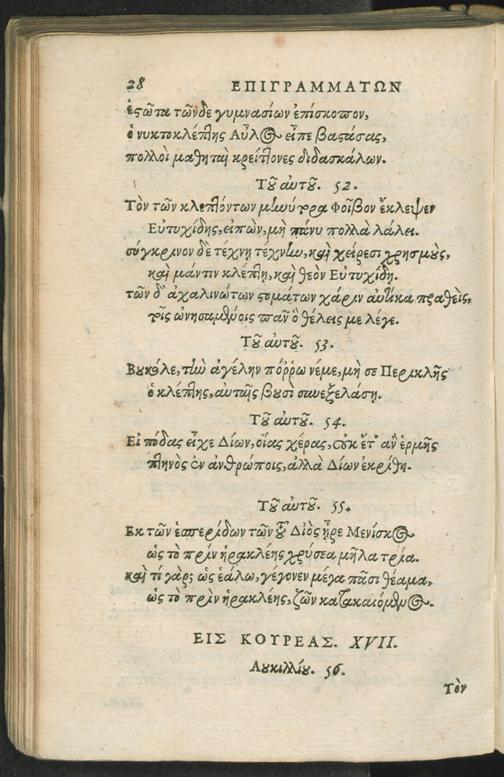 28 ΕΠΙΓΡΑΜΜΑΤΩΝ
ἑςῶτα τῶνδε γυμνασίων ἐπίσκοπον,
ὁ νυκτοκλέπτης Αὖλος εἶπε βαςάσας,
πολλοὶ μαθηταὶ κρείττονες διδασκάλων.
Τοῦ αὐτοῦ. 52.
Τὸν τῶν κλεπτόντων μηνύτορα Φοῖβον ἔκλεψεν
Εὐτυχίδης, εἰπὼν, μὴ πάνυ πολλὰ λάλει.
σύγκρινον δὲ τέχνη τέχνην, καὶ χείρεσι χρησμοὺς,
καὶ μάντιν κλέπτῃ, καὶ θεὸν Εὐτυχίδῃ.
τῶν δ' ἀχαλινώτων στομάτων χάριν αὐτίκα πραθεὶς,
τοῖς ὠνησαμένοις πᾶν ὃ θέλεις με λέγε.
Τοῦ αὐτοῦ. 53.
Βουκόλε, τὴν ἀγέλην πόῤῥω νέμε, μὴ σε Περικλῆς
ὁ κλέπτης, αὐταῖς βουσὶ συνεξελάσῃ.
Τοῦ αὐτοῦ. 54.
Εἰ πόδας εἶχε Δίων, οἵας χέρας, οὐκ ἔτ' ἂν ἑρμῆς
πτηνὸς ἐν ἀνθρώποις, ἀλλὰ Δίων ἐκρίθη.
Τοῦ αὐτοῦ. 55.
Εκ τῶν ἑσπερίδων τῶν τοῦ Διὸς ἦρε Μενίσκος
ὡς τὸ πρὶν ἡρακλέης χρύσεα μῆλα τρία.
καὶ τί γὰρ; ὡς ἑάλω, γέγονεν μέγα πᾶσι θέαμα,
ὡς τὸ πρὶν ἡρακλέης, ζῶν κατακαιόμενος.
ΕΙΣ ΚΟΥΡΕΑΣ. XVII.
Λουκιλλίου. 56.
Τὸν